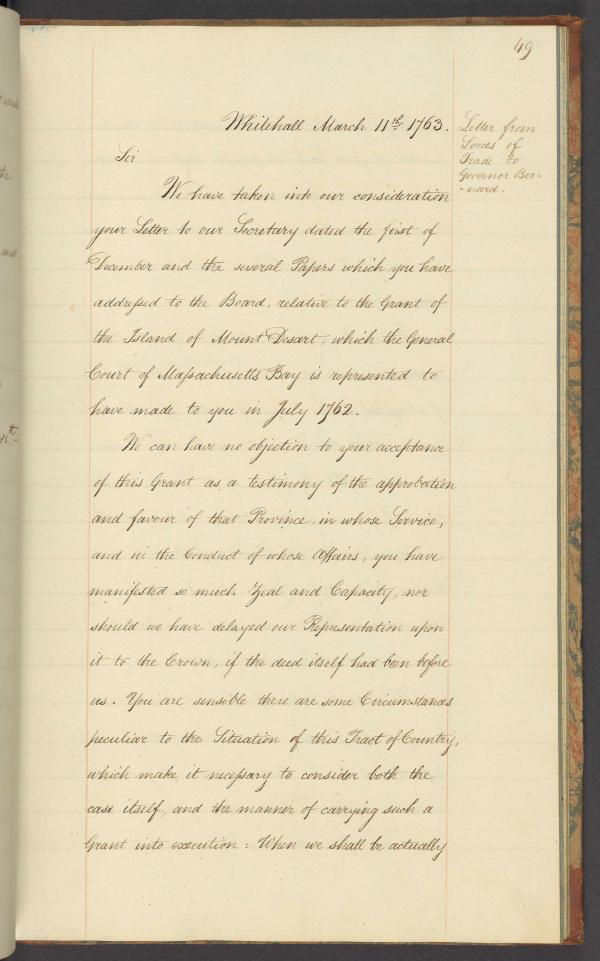 49
Whitehall March 11th 1763.
Letter from
Lords of
Trade to
Governor Ber-
-nard.
Sir
We have taken into our consideration
your Letter to our Secretary dated the first of
December and the several Papers which you have
addressed to the Board, relative to the Grant of
the Island of Mount Desart, which the General
Court of Massachusetts Bay is represented to
have made to you in July 1762.
We can have no objection to your acceptance
of this Grant as a testimony of the approbation
and favour of that Province, in whose Service,
and in the Conduct of whose Affairs, you have
manifested so much Zeal and Capacity, nor
should we have delayed our Representation upon
it to the Crown, if the deed itself had been before
us. You are sensible there are some Circumstances
peculiar to the Situation of this Tract of Country,
which make it necessary to consider both the
case itself, and the manner of carrying such a
Grant into execution: When we shall be actually